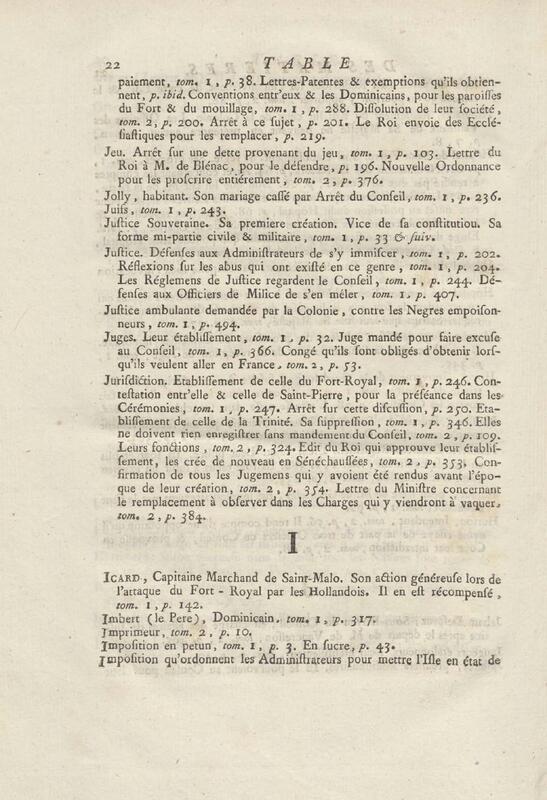 22 TABLE
paiement, tom. 1, p. 38. Lettres-Patentes & exemptions qu'ils obtien-
nent, p. ibid. Conventions entr'eux & les Dominicains, pour les paroisses
du Fort & du mouillage, tom. 1, p. 288. Dissolution de leur société,
tom. 2, p. 200. Arrêt à ce sujet, p. 201. Le Roi envoie des Ecclé-
siastiques pour les remplacer, p. 219.
Jeu. Arrêt sur une dette provenant du jeu, tom. 1, p. 103. Lettre du
Roi à M. de Blénac, pour le défendre, p. 196. Nouvelle Ordonnance
pour les proscrire entiérement, tom. 2, p. 376.
Jolly, habitant. Son mariage cassé par Arrêt du Conseil, tom. 1, p. 236.
Juifs, tom. 1, p. 243.
Justice Souveraine. Sa premiere création. Vice de sa constitutiou. Sa
forme mi-partie civile & militaire, tom. 1, p. 33 & suiv.
Justice. Défenses aux Administrateurs de s'y immiscer, tom. 1, p. 202.
Réflexions sur les abus qui ont existé en ce genre, tom. 1, p. 204.
Les Réglemens de Justice regardent le Conseil, tom. 1, p. 244. Dé-
fenses aux Officiers de Milice de s'en méler, tom. 1, p. 407.
Justice ambulante demandée par la Colonie, contre les Negres empoison-
neurs, tom. 1, p. 494.
Juges. Leur établissement, tom. 1, p. 32. Juge mandé pour faire excuse
au Conseil, tom. 1, p. 366. Congé qu'ils sont obligés d'obtenir lors-
qu'ils veulent aller en France, tom. 2, p. 53.
Jurisdiction. Etablissement de celle du Fort-Royal, tom. 1, p. 246. Con-
testation entr'elle & celle de Saint-Pierre, pour la préséance dans les
Cérémonies, tom. 1, p. 247. Arrêt sur cette discussion, p. 250. Eta-
blissement de celle de la Trinité. Sa suppression, tom. 1, p. 346. Elles
ne doivent rien enregistrer sans mandement du Conseil, tom. 2, p. 109.
Leurs fonctions, tom. 2, p. 324. Edit du Roi qui approuve leur établis-
sement, les crée de nouveau en Sénéchaussées, tom. 2, p. 353. Con-
firmation de tous les Jugemens qui y avoient été rendus avant l'épo-
que de leur création, tom. 2, p. 354. Lettre du Ministre concernant
le remplacement à observer dans les Charges qui y viendront à vaquer,
tom. 2, p. 384.
I
ICARD, Capitaine Marchand de Saint-Malo. Son action généreuse lors de
l'attaque du Fort-Royal par les Hollandois. Il en est récompensé,
tom. 1, p. 142.
Imbert (le Pere), Dominicain, tom. 1, p. 317.
Imprimeur, tom. 2, p. 10.
Imposition en petun, tom. 1, p. 3. En sucre, p. 43.
Imposition qu'ordonnent les Administrateurs pour mettre l'Isle en état de